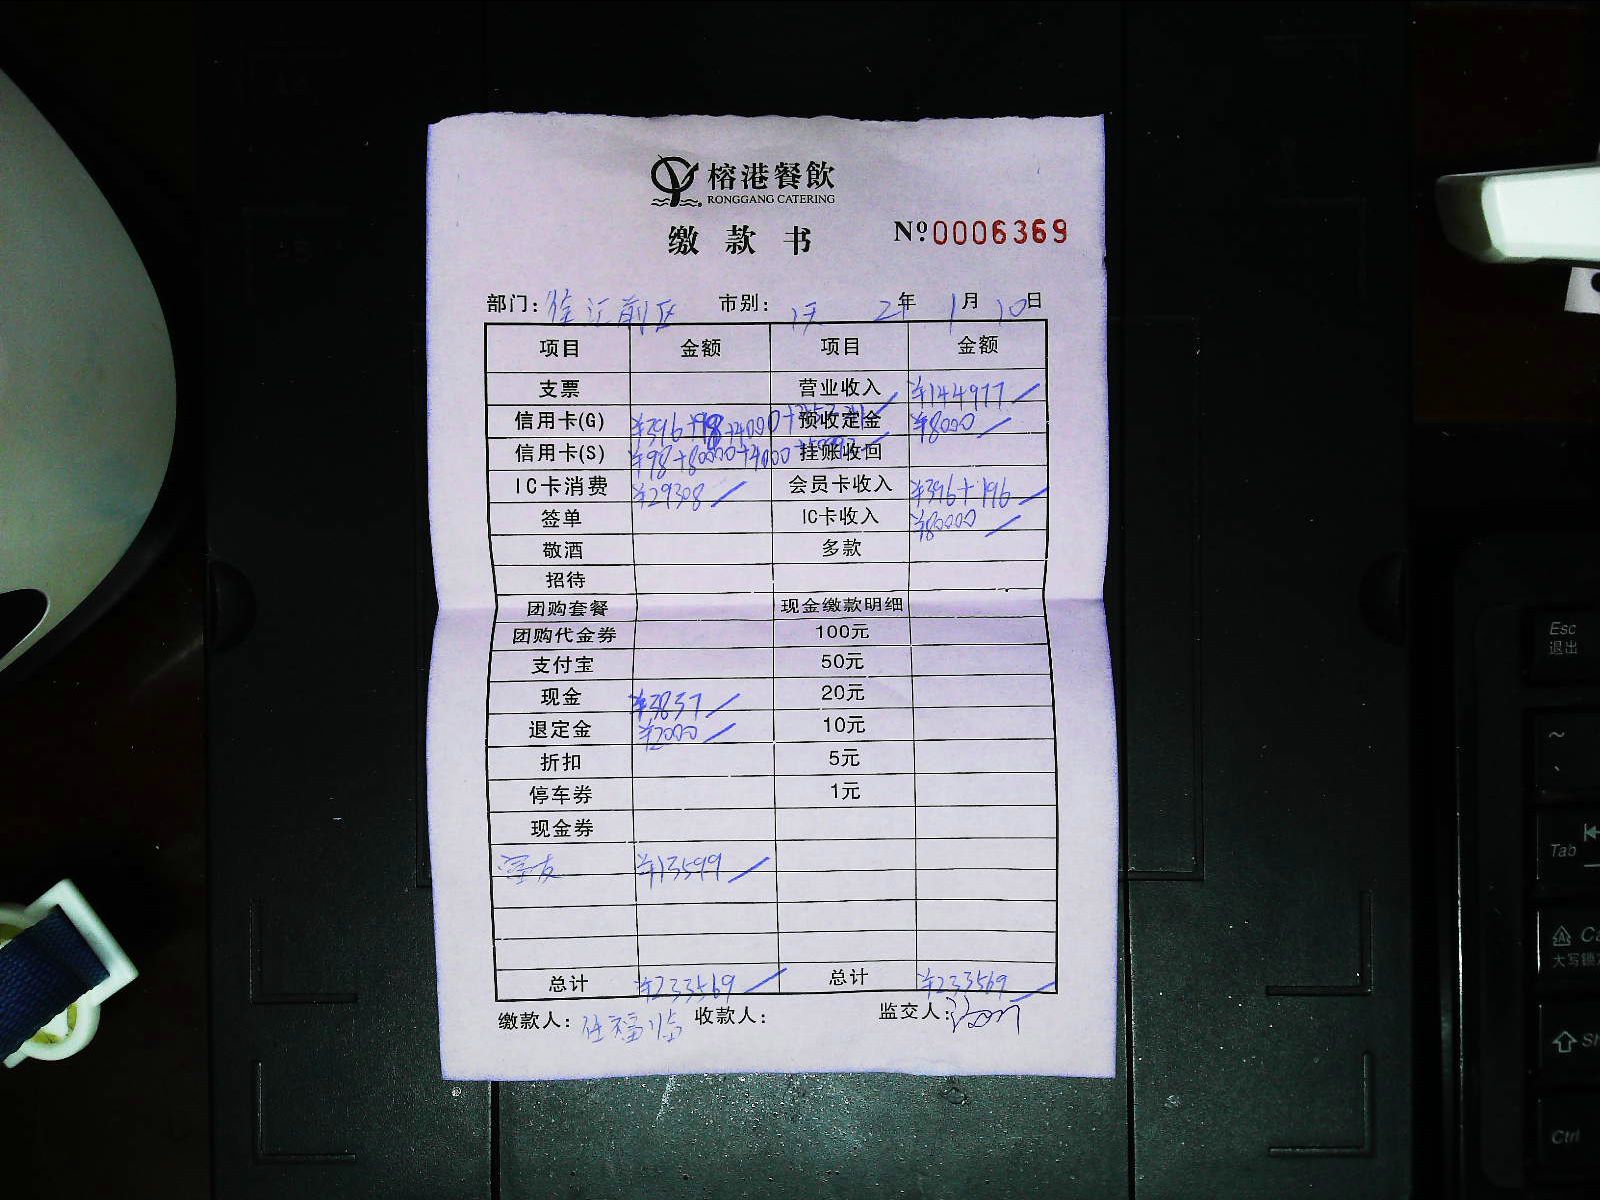 榕港餐飲
RONGGANG CATERING
缴款书
Nº0006369
部门：徐汇前区 市别： 2年1月10日
项目 金额 项目 金额
支票 营业收入 ¥144977
信用卡(G) ¥396+98+4000+ 预收定金 ¥8000
信用卡(S) ¥98+80000+4000+ 挂账收回
IC卡消费 ¥29308 会员卡收入 ¥396+196
签单 IC卡收入 ¥80000
敬酒 多款
招待
团购套餐 现金缴款明细
团购代金券 100元
支付宝 50元
现金 ¥3837 20元
退定金 ¥2000 10元
折扣 5元
停车券 1元
现金券
¥13599
总计 ¥233569 总计 ¥233569
缴款人：任福临 收款人： 监交人：
Esc
退出
~
Tab
大写锁
Ctrl